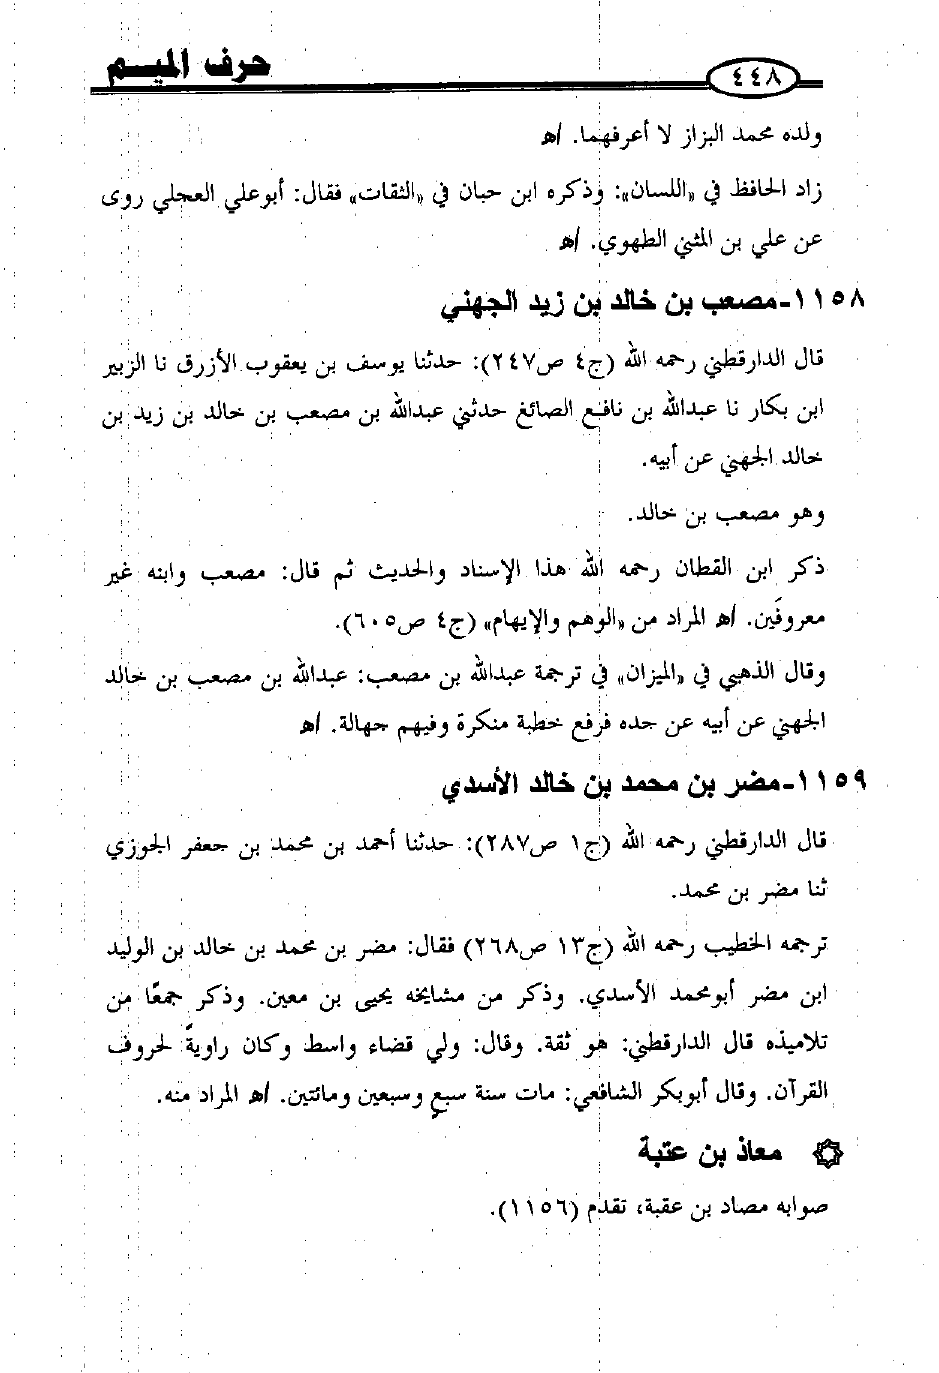 ٤٤٨ حرف الميم
ولده محمد البزاز لا أعرفهما. اهـ
زاد الحافظ في «اللسان»: وذكره ابن حبان في «الثقات» فقال: أبوعلي العجلي روى
عن علي بن المثنى الطهوي. اهـ
١١٥٨-مصعب بن خالد بن زيد الجهني
قال الدارقطني رحمه الله (ج٤ ص٢٤٧): حدثنا يوسف بن يعقوب الأزرق نا الزبير
ابن بكار نا عبدالله بن نافع الصائغ حدثني عبدالله بن مصعب بن خالد بن زيد بن
خالد الجهني عن أبيه.
وهو مصعب بن خالد.
ذكر ابن القطان رحمه الله هذا الإسناد والحديث ثم قال: مصعب وابنه غير
معروفَين. اهـ المراد من «الوهم والإيهام» (ج٤ ص٦٠٥).
وقال الذهبي في «الميزان» في ترجمة عبدالله بن مصعب: عبدالله بن مصعب بن خالد
الجهني عن أبيه عن جده فرفع خطبة منكرة وفيهم جهالة. اهـ
١١٥٩-مضر بن محمد بن خالد الأسدي
قال الدارقطني رحمه الله (ج١ ص٢٨٧): حدثنا أحمد بن محمد بن جعفر الجوزي
ثنا مضر بن محمد.
ترجمه الخطيب رحمه الله (ج١٣ ص٢٦٨) فقال: مضر بن محمد بن خالد بن الوليد
ابن مضر أبومحمد الأسدي. وذكر من مشايخه يحيى بن معين. وذكر جمعًا من
تلاميذه قال الدارقطني: هو ثقة. وقال: ولي قضاء واسط وكان راويةً لحروف
القرآن. وقال أبوبكر الشافعي: مات سنة سبعٍ وسبعين ومائتين. اهـ المراد منه.
معاذ بن عتبة
صوابه مصاد بن عقبة، تقدم (١١٥٦).